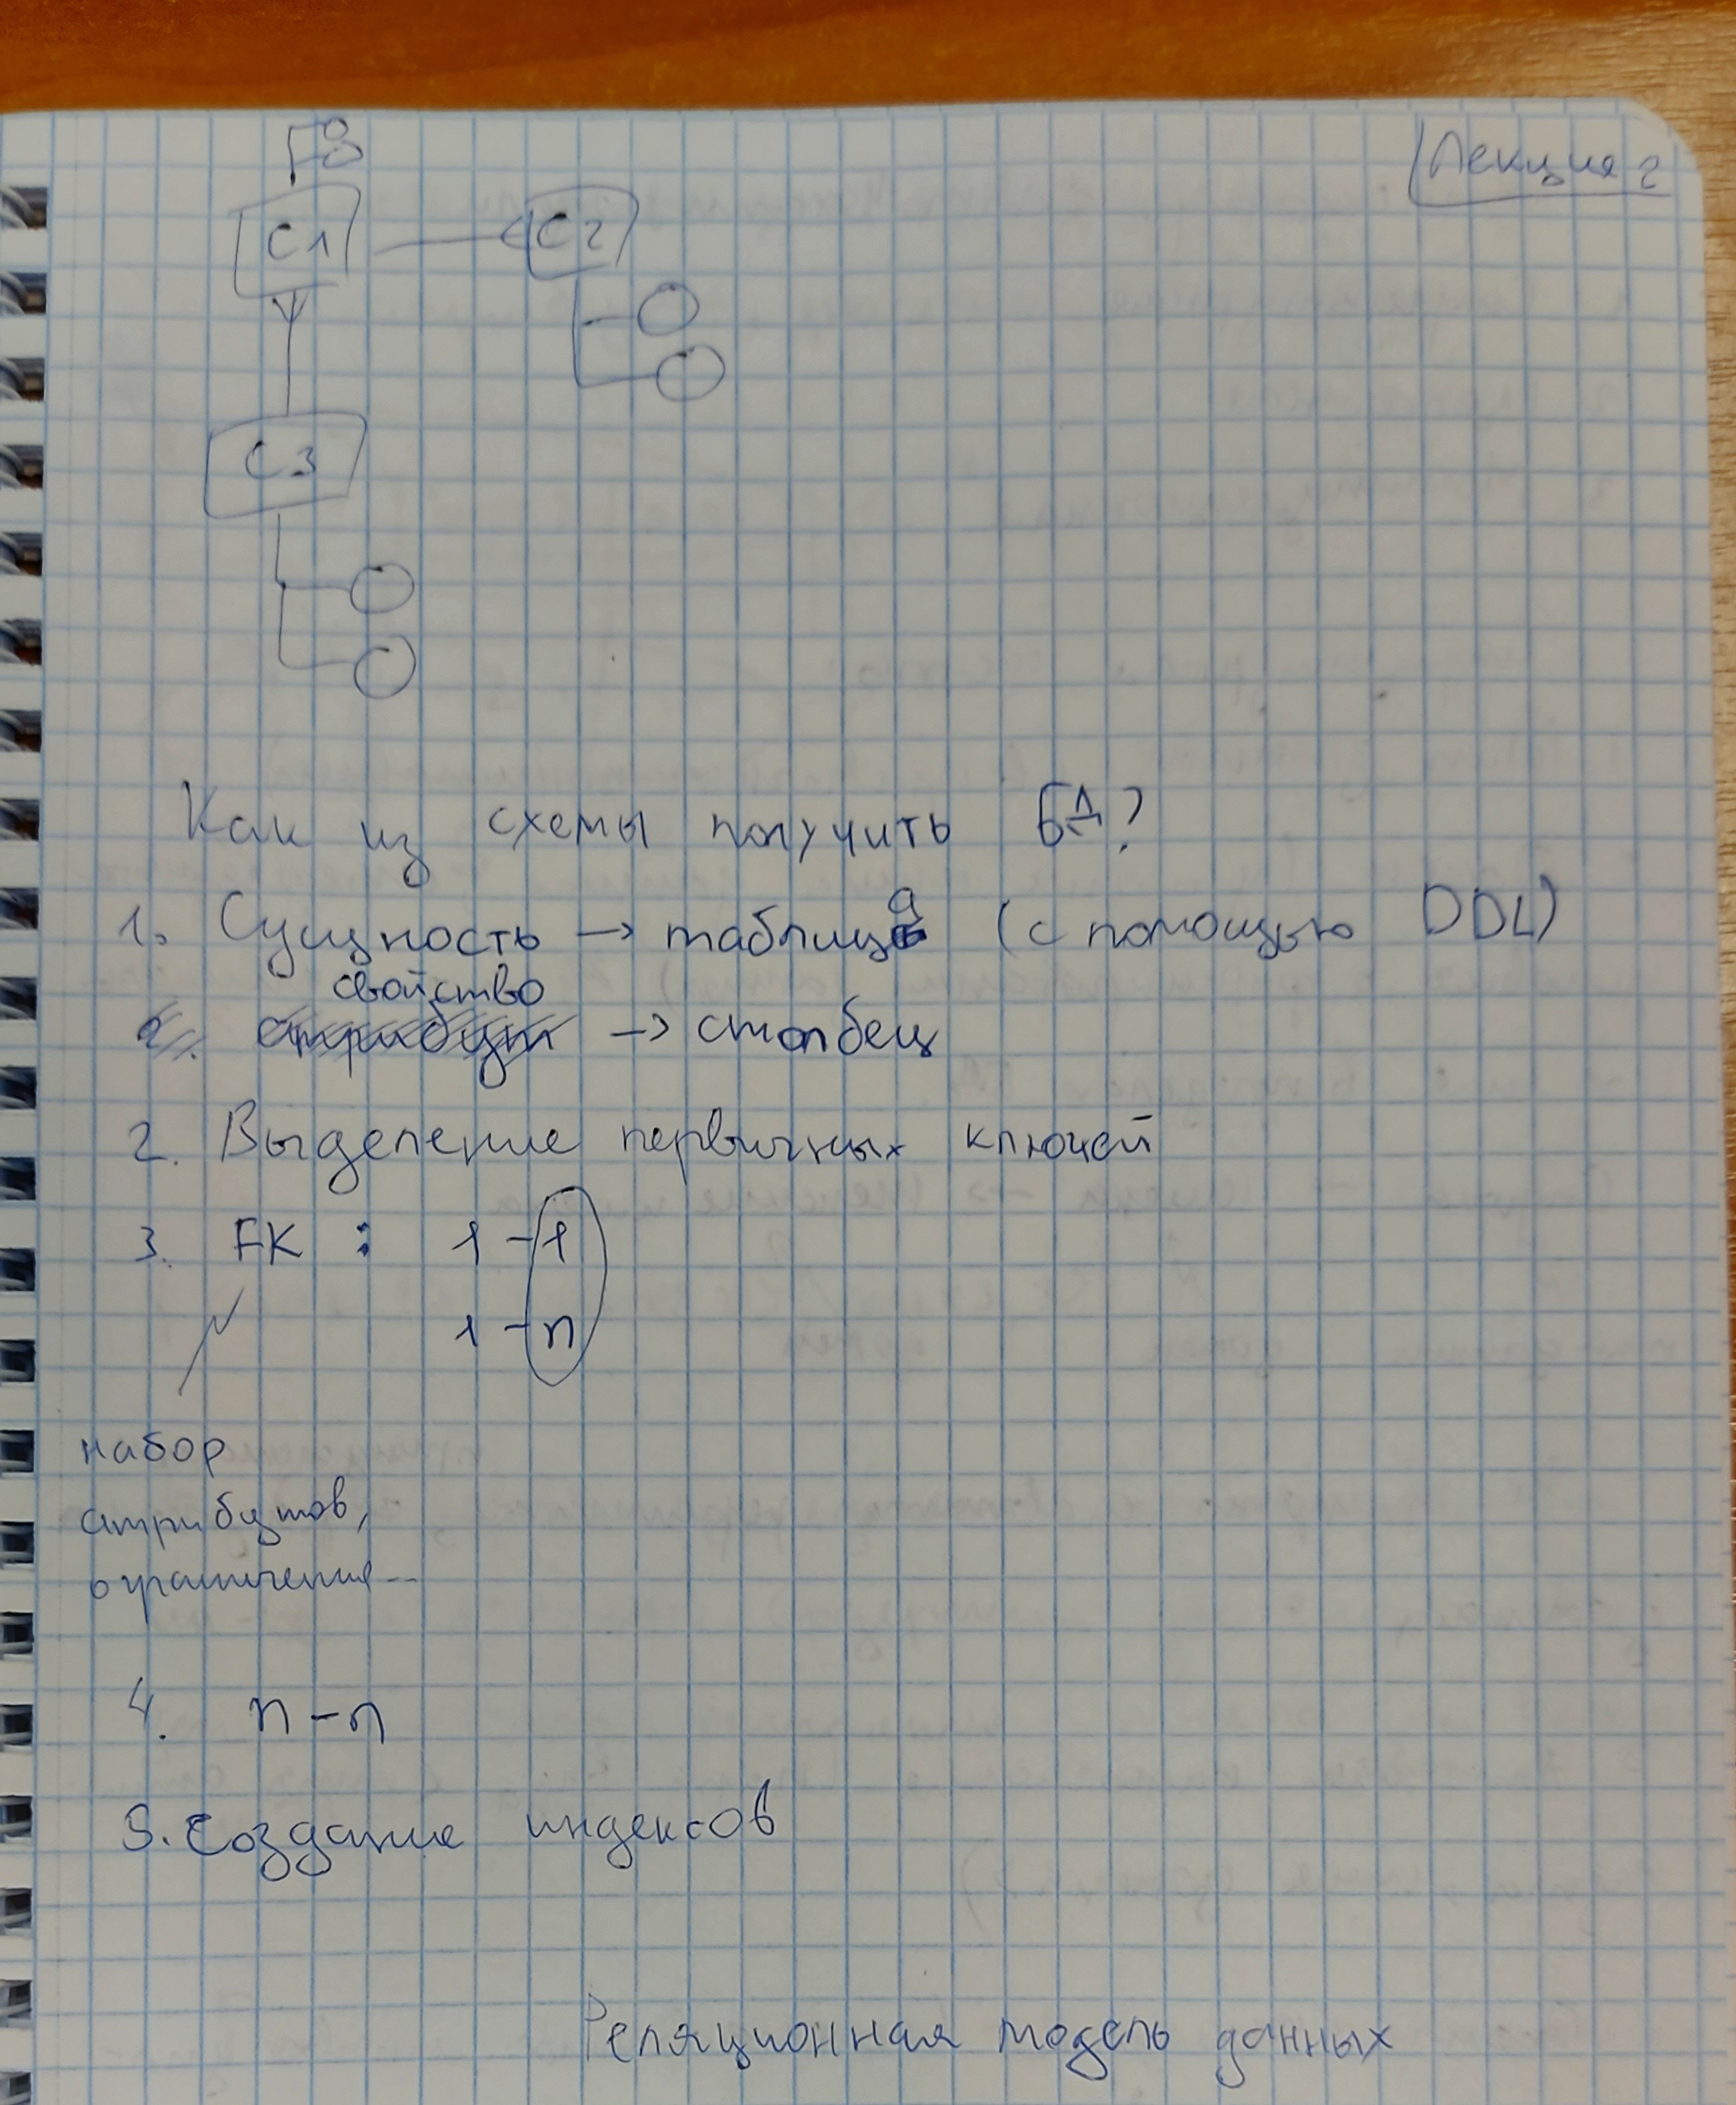 Лекция 2
С1
С2
С3
Как из схемы получить БД?
1. Сущность → таблица (с помощью DDL)
свойство
2. атрибут → столбец
2. Выделение первичных ключей
3. FK : 1 – 1
1 – n
набор
атрибутов,
ограничение--
4. n – n
5. Создание индексов
Реляционная модель данных